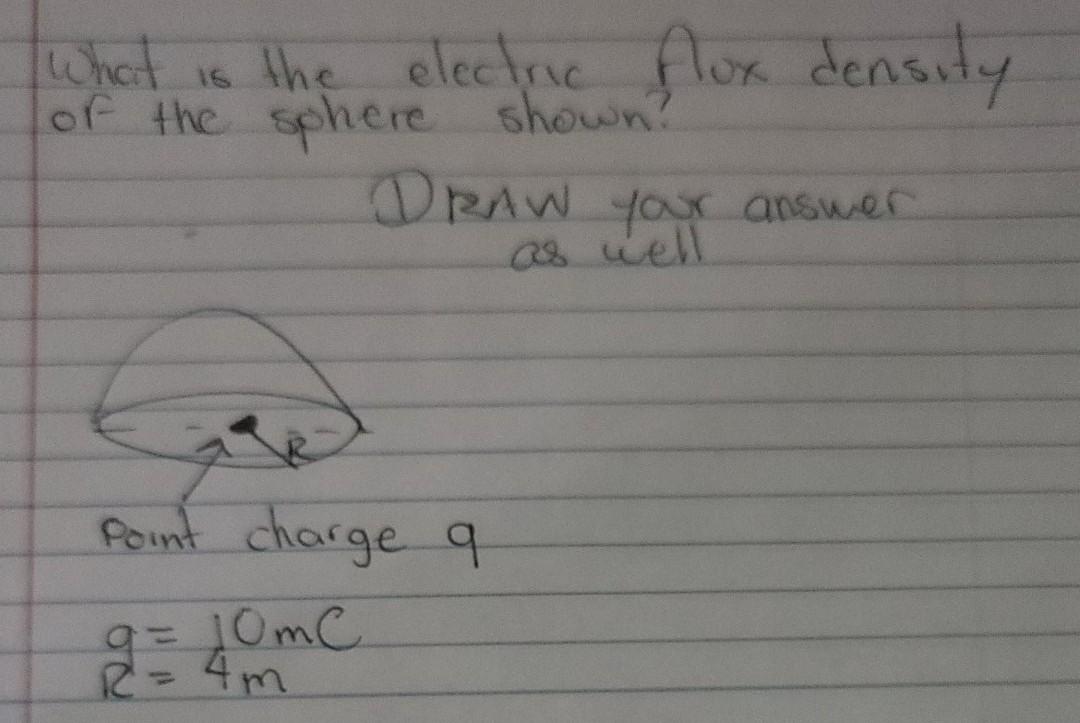 What is the electric flux density
of the sphere shown?
DRAW your answer
as well
R
Point charge q
q = 10mC
R = 4m